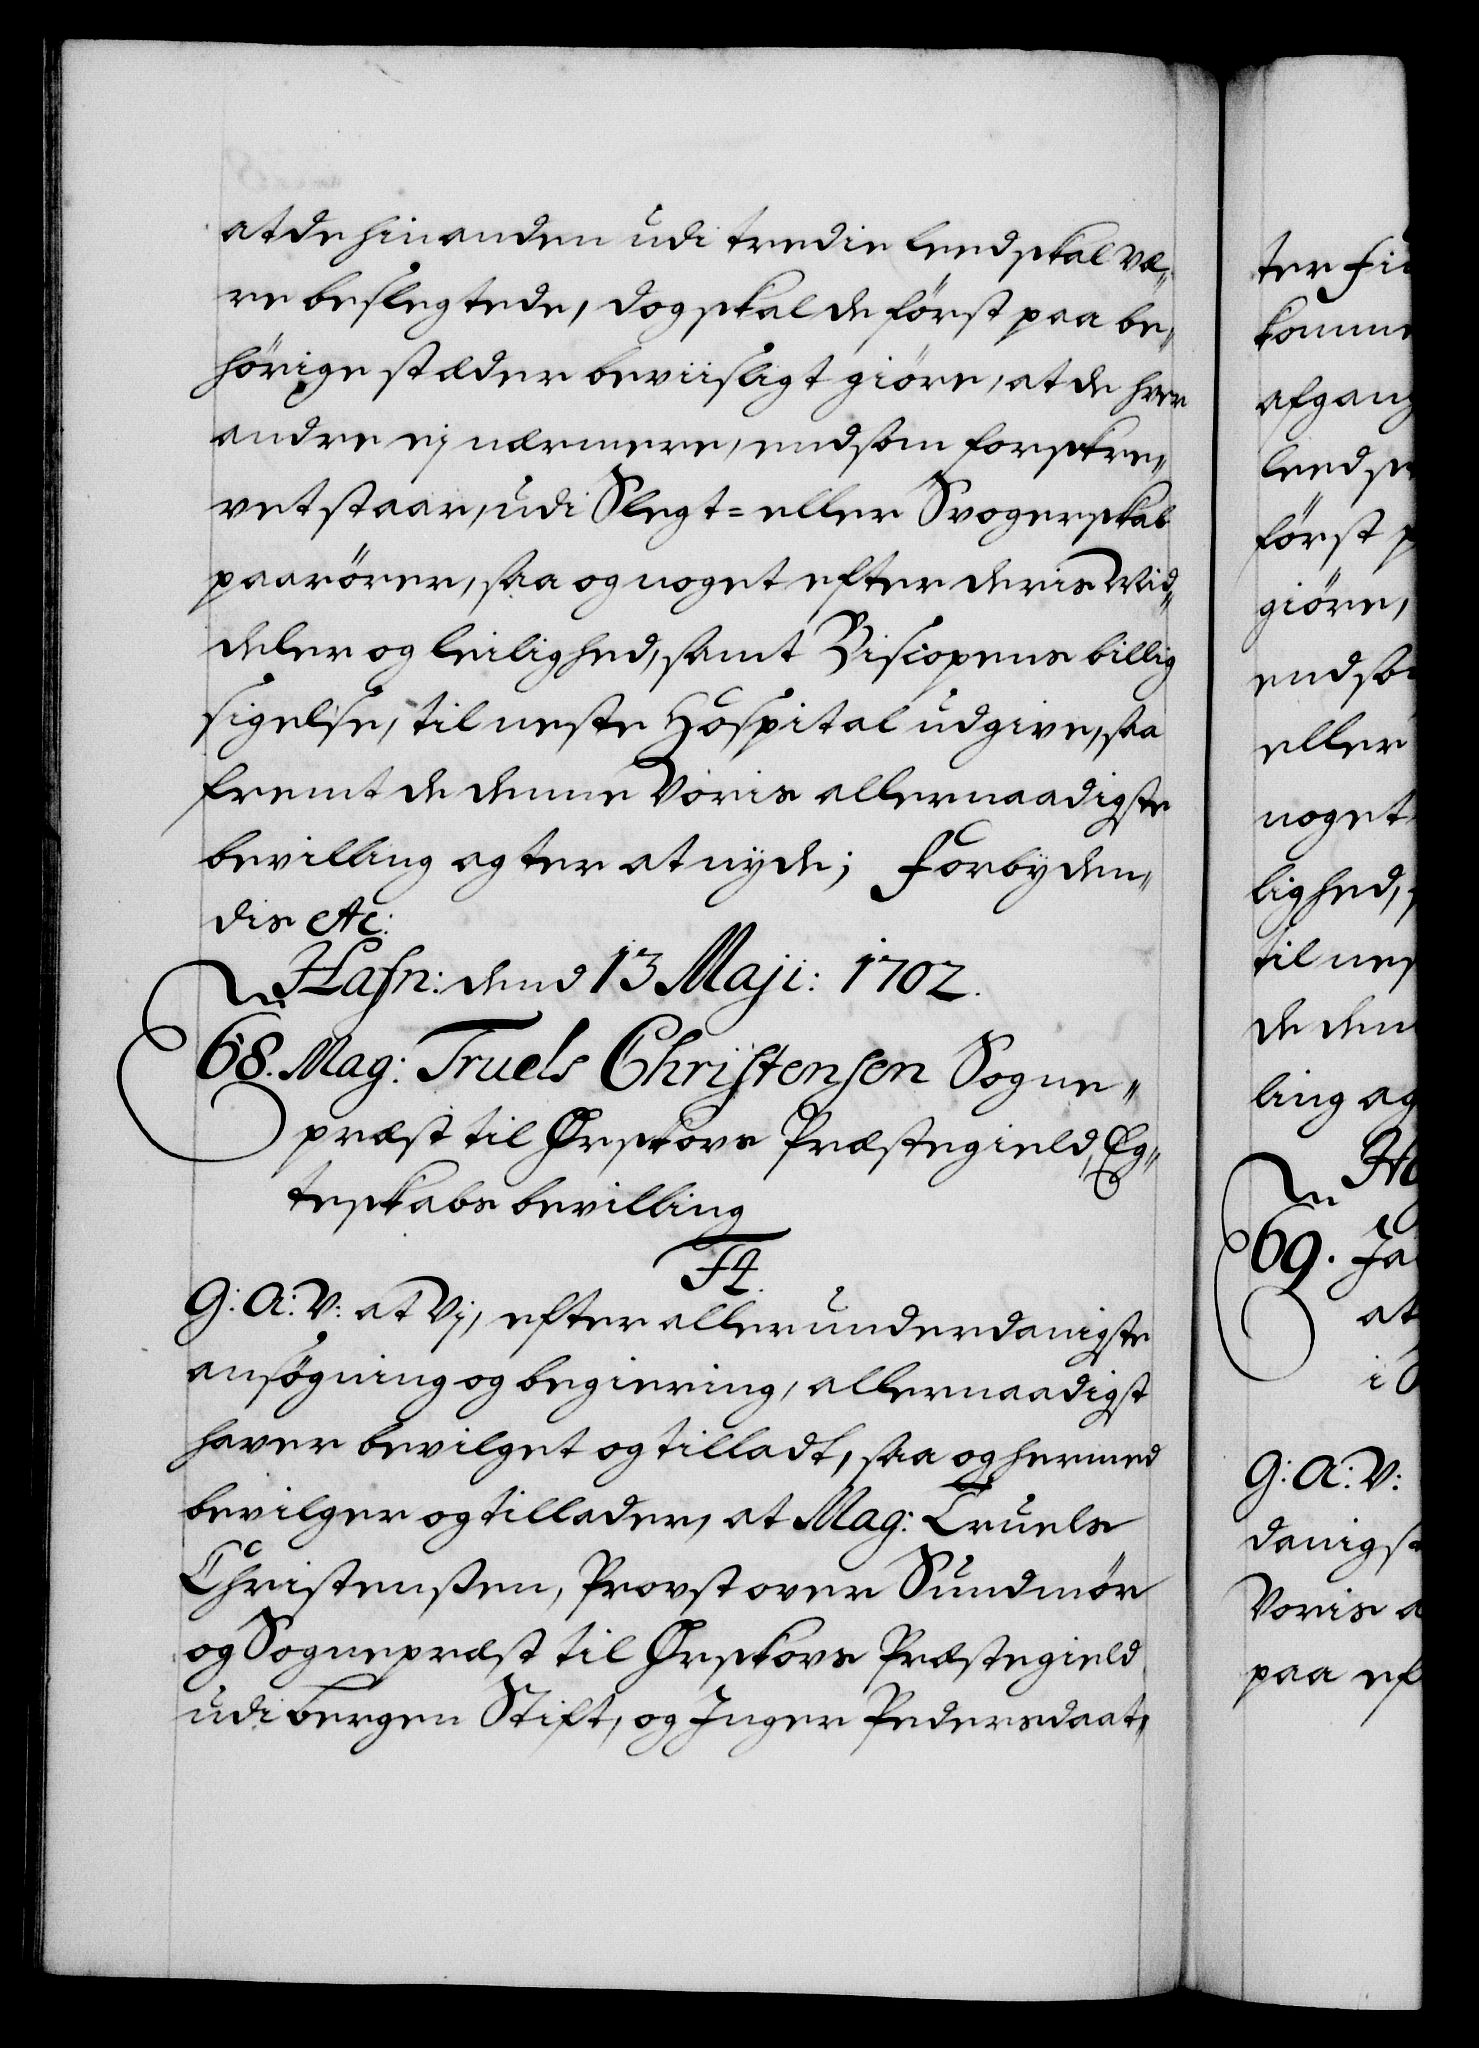 at de hinanden udi tredie leed skal væ„
re beslegtede, dog skal de først paa be„
hörige stæder beviisligt giöre, at de hver
andre ej nærmere, end som forskre„
vet staar, udi Slegt= eller Svogerskab
paarörer, saa og noget efter deris Mid„
deler og leilighed, samt Biscopens billig
sigelse, til neste Hospital udgive, saa
fremt de denne Voris allernaadigste
bevilling agter at nyde; Forbyden„
dis etc:
Hafn: dend 13 Maji: 1702.
68. Mag: Truels Christensen Sogne„
præst til Ørskovs Præstegield, Eg„
teskabs bevilling
F4.
G: A: V: at Vj, efter allerunderdanigste
ansögning og begiering, allernaadigst
haver bevilget og tilladt, saa og hermed
bevilger og tillader, at Mag: Truels
Christenssen, Provst over Sundmör
og Sognepræst til Ørskovs Præstegield
udi bergen Stift, og Inger Pedersdaat„
ter Fi
komme
afgang
leed s
först p
giöre,
end so
eller
noget
lighed,
til nes
de den
ling ag
Ha
69. Ja
at
i S
G: A: V:
danigst
Voris a
paa ef